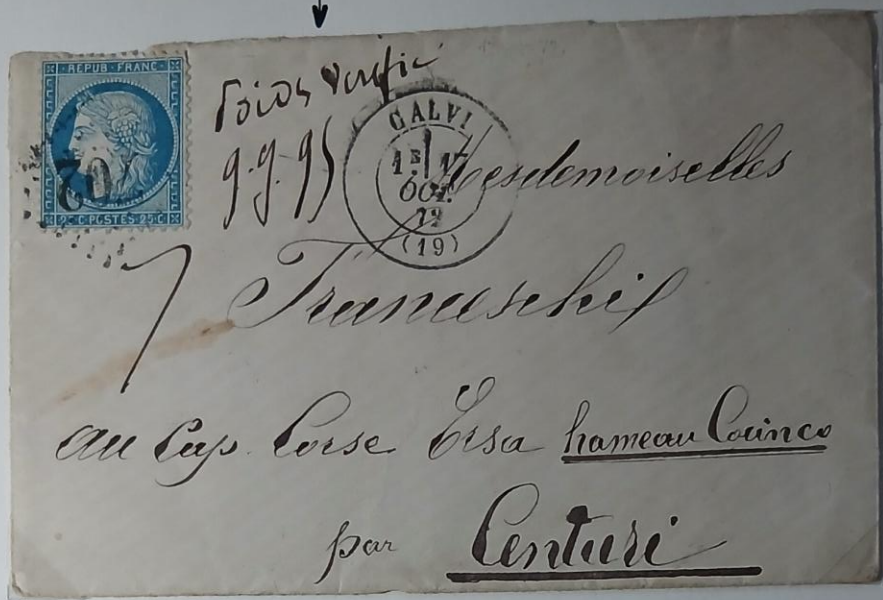 REPUB · FRANC
25 C POSTES 25 C
702
Poids verifié
9.9.95
CALVI
1E 17
OCT.
72
(19)
Mesdemoiselles
Franceschi
7
au Cap Corse Ersa hameau Cocinco
par Centuri